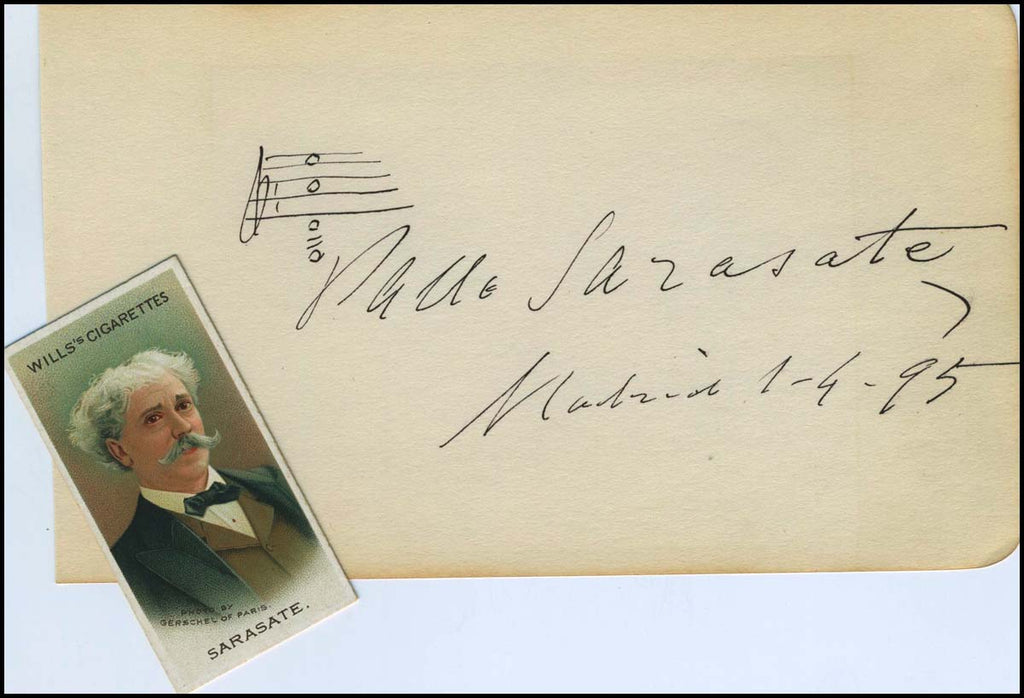 Pablo Sarasate
Madrid 1-4-95
WILLS'S CIGARETTES
PHOTO BY
GERSCHEL OF PARIS.
SARASATE.